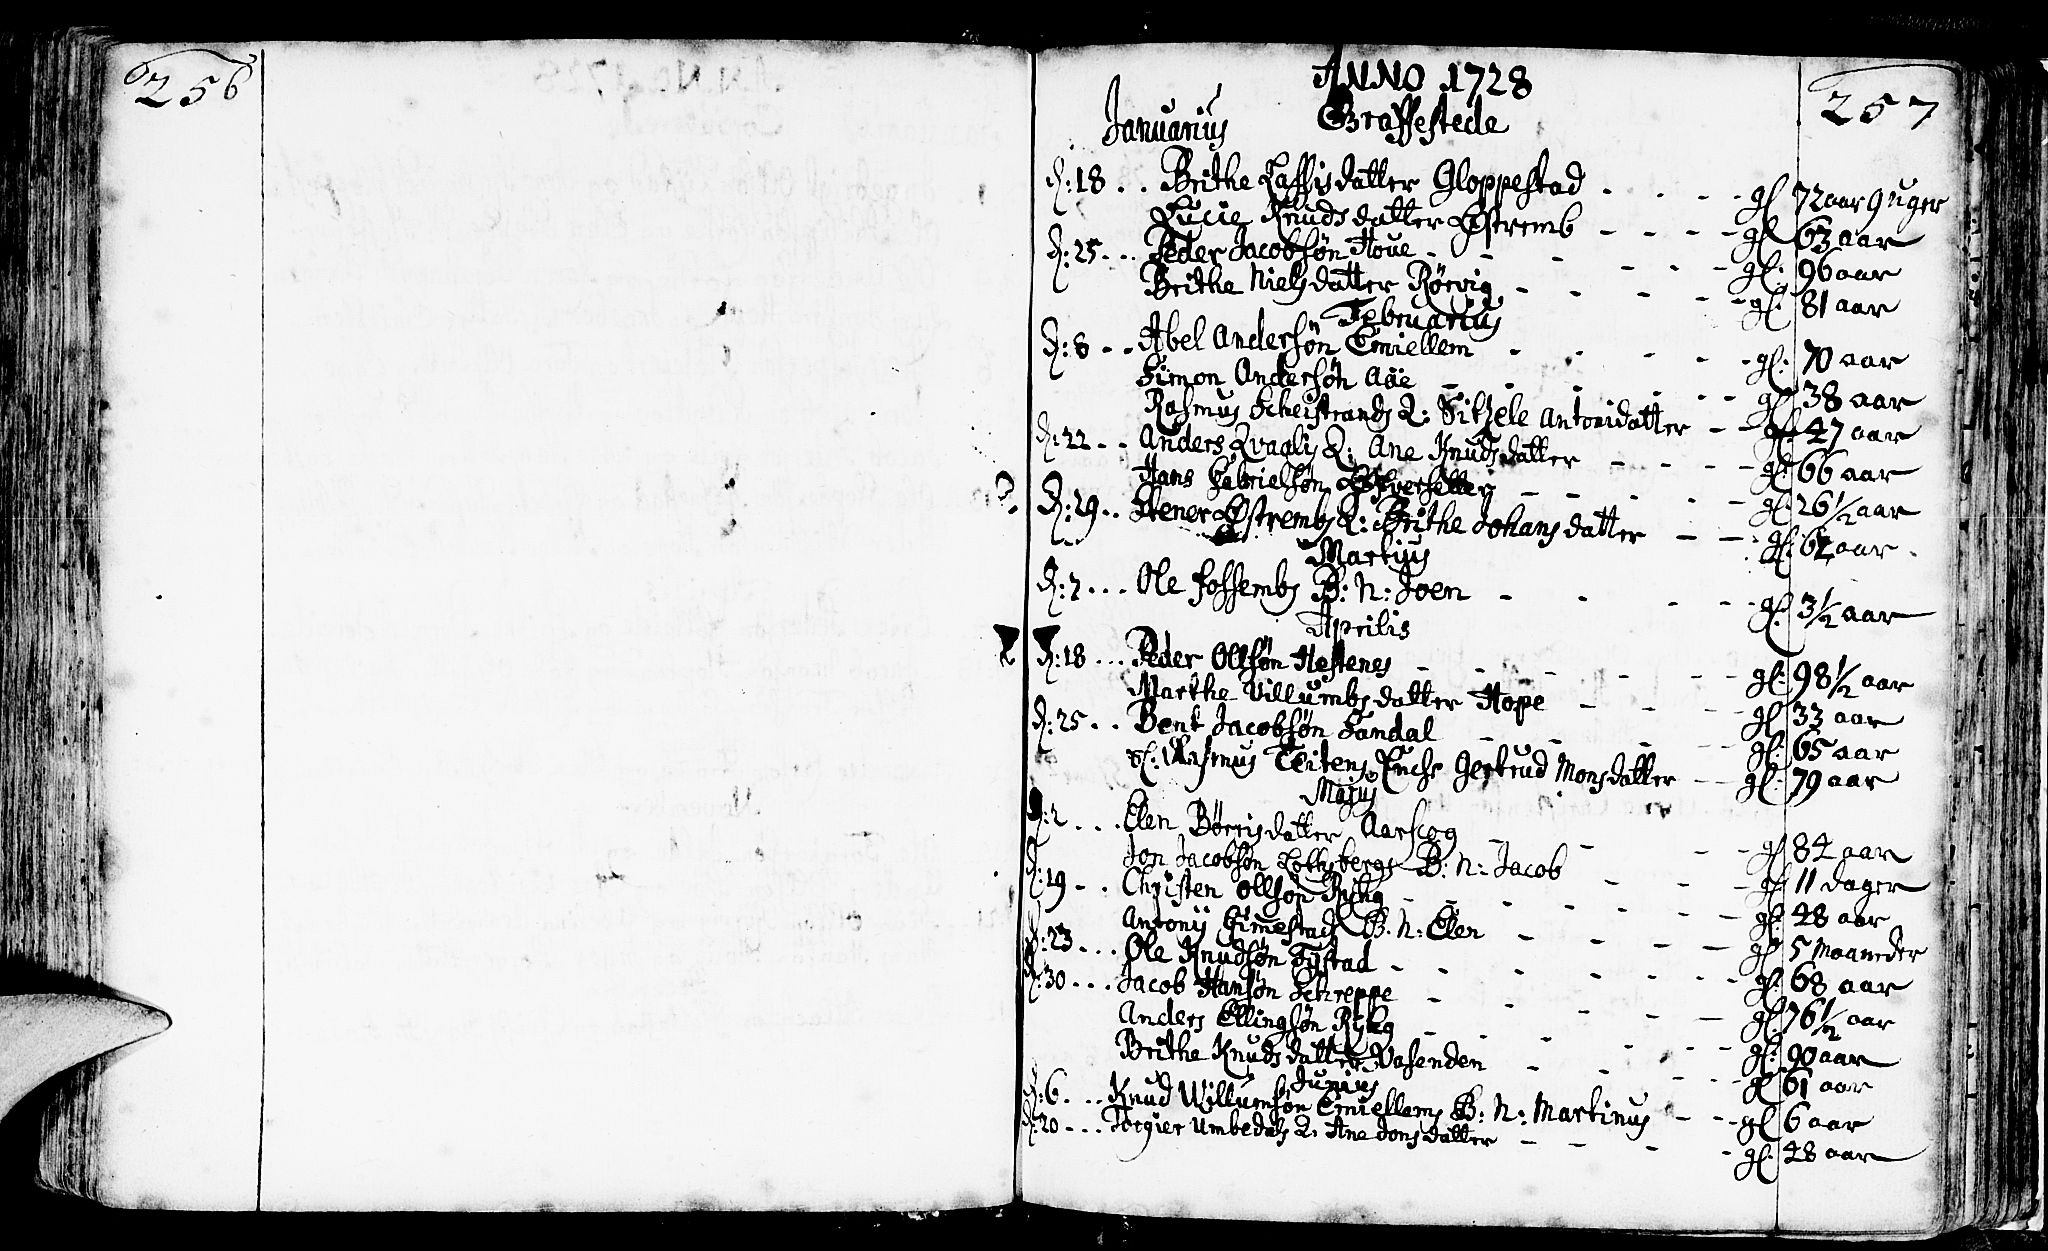 256
257
ANNO 1728
Januarius Graffestede
d: 18 . . Brithe Lassisdatter Gloppestad . . . . gl 72 aar 9 uger
Lucie Knudsdatter Østremb - - - - gl 63 aar
d: 25 . . . Peder Jacobsøn Houe - - - - gl: 96 aar
Brithe Nielsdatter Rørvig - - - - gl: 81 aar
Februarius
d: 8 - - Abel Andersøn Emiellem - - - - gl: 70 aar
Simon Andersøn Aae - - - - gl 38 aar
Rasmus Q: Sitzele Antonidatter - - gl: 47 aar
d: 22 - - Anders Q: Ane Knudsdatter - - - - gl: 66 aar
Hans Gabrielsøn - - - - gl: 26½ aar
d: 29 . . Stener Østrembs Q: Brithe Johansdatter - - gl: 62 aar
Martius
d: 7 . . . Ole Fossembs B: N: Joen - - - - gl: 3½ aar
Aprilis
d: 18 . . . Peder Ollsøn Hestenes - - - - gl: 98½ aar
Marthe Villumbsdatter Hope - - - - gl 33 aar
d: 25 . . Bent Jacobsøn Sandal - - - - gl: 65 aar
Sl: Rasmus Teitens Enche Gertrud Monsdatter - - gl: 79 aar
Majus
d: 2 . . . Elen Børrisdatter Aarscog - - - gl 84 aar
Jon Jacobsøn B: N: Jacob - - - gl 11 dager
d: 19 - . . Christen Ollsøn - - - - gl: 48 aar
Antonij Gimestads B: N: Elen - - - - gl 5 maaneder
d: 23 . . . Ole Knudsøn Tystad - - - - gl: 68 aar
d: 30 . . . Jacob Hansøn Schreppe - - - - gl: 76½ aar
Anders Ellingsøn - - - - gl: 90 aar
Brithe Knudsdatter Vasenden - - - - gl 61 aar
Junius
d: 6 . . . Knud Willumsøn Emiellems B: N: Martinus - - gl 6 aar
d: 20 - . . Torgier Umbedals Q: Ane Jonsdatter - - - - gl: 48 aar